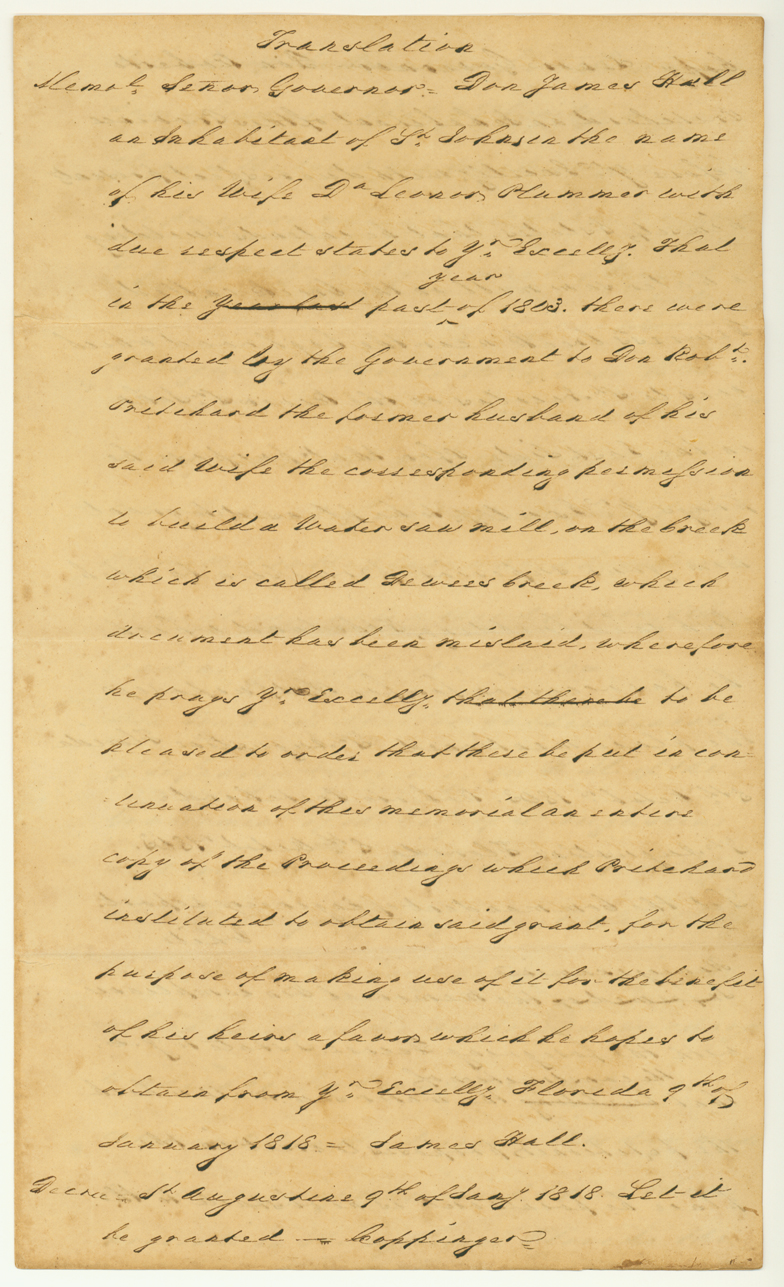 Translation
Memol. Señor Governor = Don James Hall
an Inhabitant of St. Johns in the name
of his Wife Da Leonor Plummer with
due respect states to Yr. Excelly. That
year
in the ~~year last~~ past ‸ of 1803. there were
granted by the Government to Don Robt.
Pritchard the former husband of his
said Wife the corresponding permission
to build a Water saw mill, on the Creek
which is called Dewees Creek, which
document has been mislaid, wherefore
he prays Yr. Excelly. ~~that there be~~ to be
pleased to order that there be put in con-
tinuation of this memorial an entire
copy of the Proceedings which Pritchard
instituted to obtain said grant, for the
purpose of making use of it for the benefit
of his heirs a favor which he hopes to
obtain from Yr. Excelly. Florida 9th of
January 1818 = James Hall.
Decree - St Augustine 9th of Jany. 1818. Let it
be granted — Coppinger =